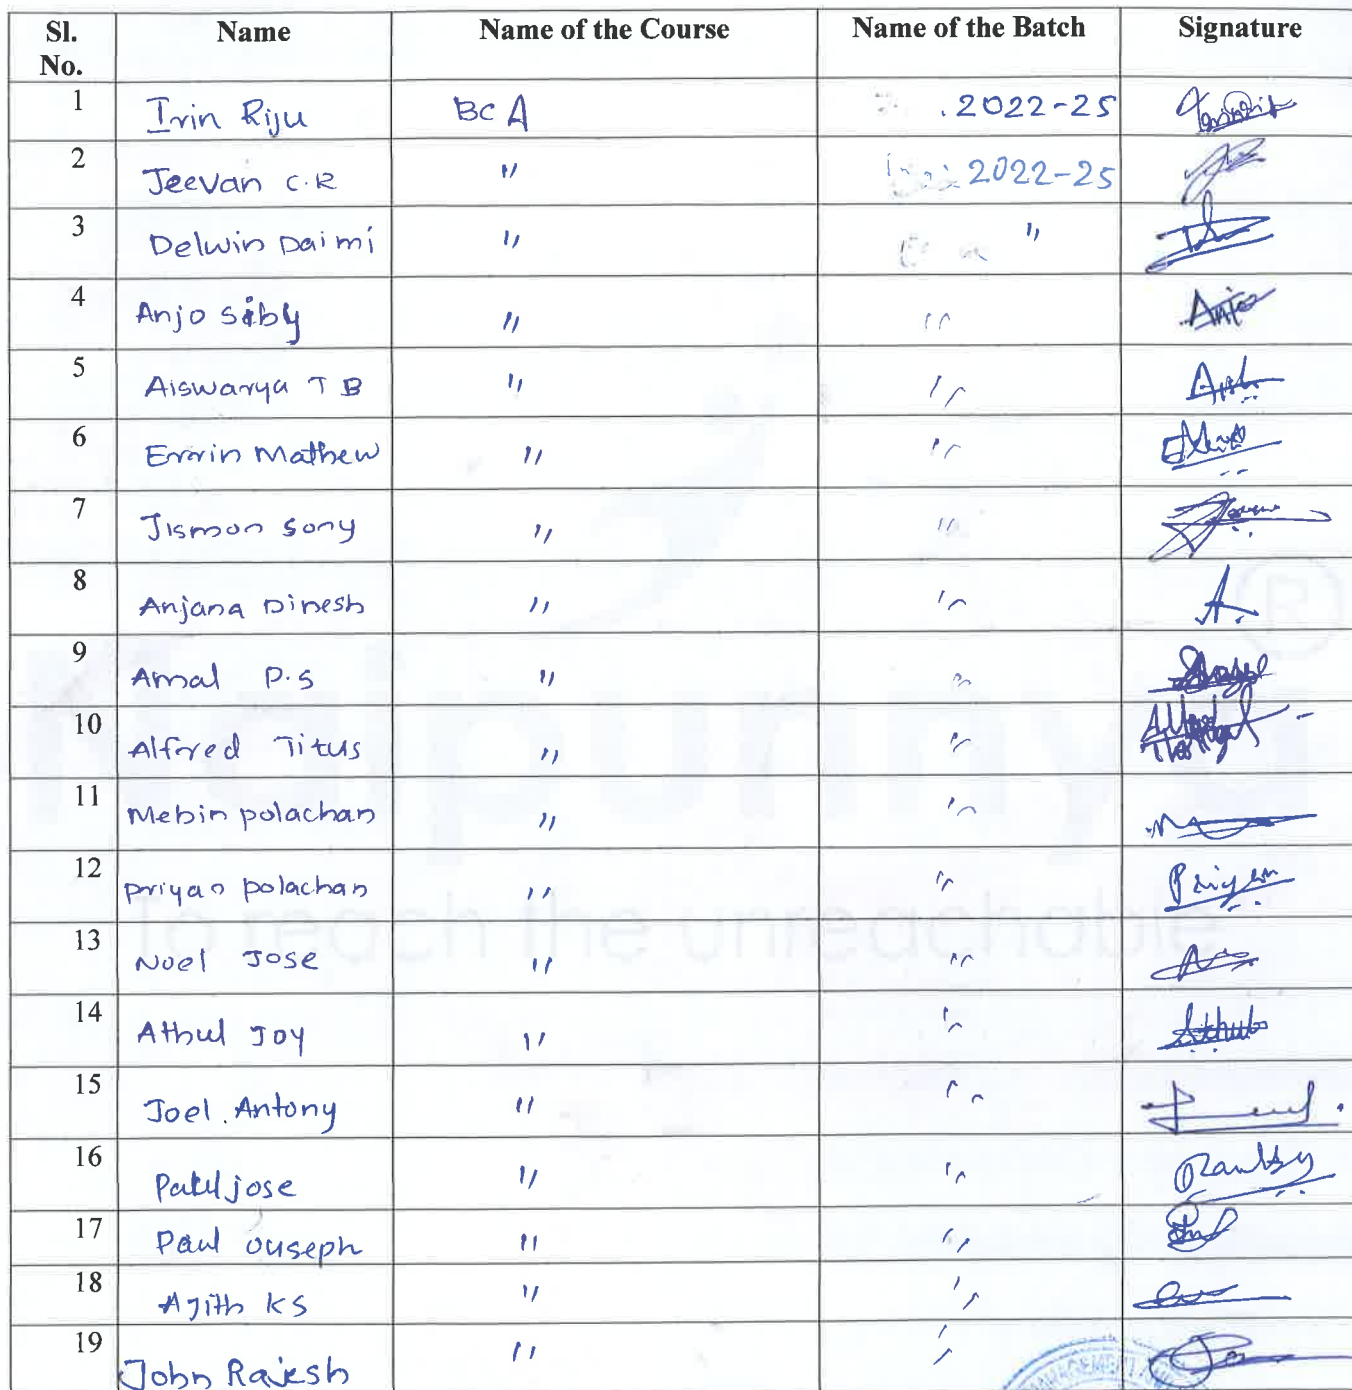 Sl. No. Name Name of the Course Name of the Batch Signature
1 Irin Riju BCA 2022-25
2 Jeevan C.R " 2022-25
3 Delwin Daimi " "
4 Anjo Siby " " Anjo
5 Aiswarya T B " "
6 Errin Mathew " "
7 Jismon Sony " "
8 Anjana Dinesh " " A.
9 Amal P.S " "
10 Alfred Titus " "
11 Mebin polachan " "
12 priyan polachan " " Priyan
13 Noel Jose " "
14 Athul Joy " " Athul
15 Joel. Antony " "
16 Paul jose " "
17 Paul ouseph " "
18 Ajith KS " "
19 John Rajesh " "
naipunnya
®
To reach the unreachable